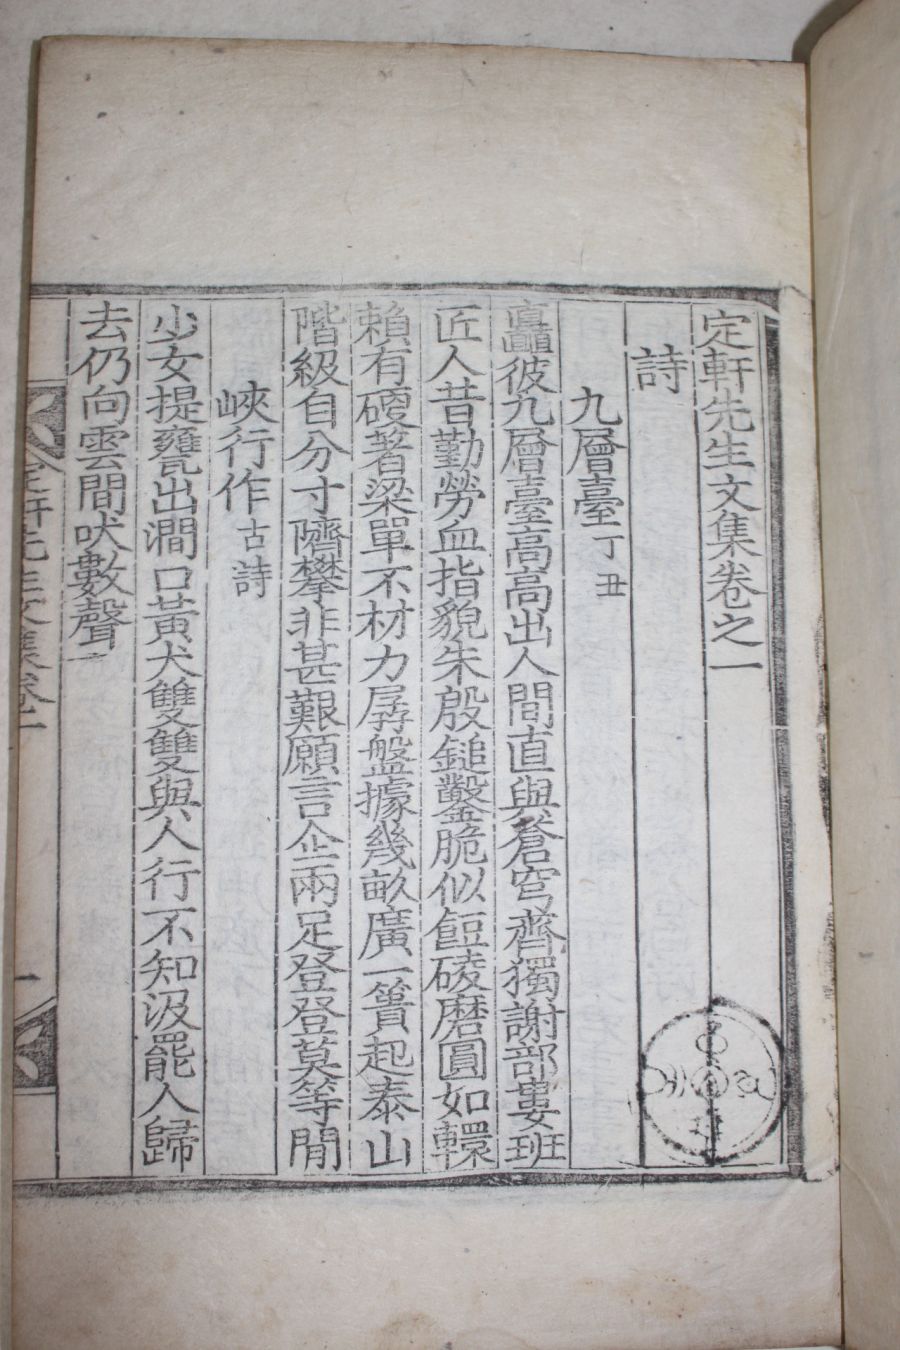 定軒先生文集卷之一
詩
九層臺丁丑
矗彼九層臺高高出人間直與蒼穹齊獨謝部婁班
匠人昔勤勞血指貌朱殷鎚鑿脆似餖磨圓如轘
賴有礎著梁單不材力孱盤據幾畝廣一簣起泰山
階級自分寸隮攀非甚艱願言企兩足登登莫等閒
峽行作古詩
少女提甕出澗口黃犬雙雙與人行不知汲罷人歸
去仍向雲間吠數聲
定軒先生文集卷一
一